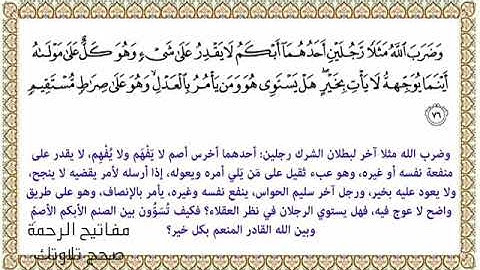 وَضَرَبَ ٱللَّهُ مَثَلًا رَّجُلَيْنِ أَحَدُهُمَآ أَبْكَمُ لَا يَقْدِرُ عَلَىٰ شَىْءٍ وَهُوَ كَلٌّ عَلَىٰ مَوْلَىٰهُ
أَيْنَمَا يُوَجِّههُّ لَا يَأْتِ بِخَيْرٍ هَلْ يَسْتَوِى هُوَ وَمَن يَأْمُرُ بِٱلْعَدْلِ وَهُوَ عَلَىٰ صِرَٰطٍ مُّسْتَقِيمٍ
٧٦
وضرب الله مثلا آخر لبطلان الشرك رجلين: أحدهما أخرس أصم لا يَفْهَم ولا يُفْهِم، لا يقدر على
منفعة نفسه أو غيره، وهو عبء ثقيل على مَن يَلي أمره ويعوله، إذا أرسله لأمر يقضيه لا ينجح،
ولا يعود عليه بخير، ورجل آخر سليم الحواس، ينفع نفسه وغيره، يأمر بالإنصاف، وهو على طريق
واضح لا عوج فيه، فهل يستوي الرجلان في نظر العقلاء؟ فكيف تُسَؤُون بين الصنم الأبكم الأصمِّ
وبين الله القادر المنعم بكل خير؟
مفاتيح الرحمة
صحح تلاوتك